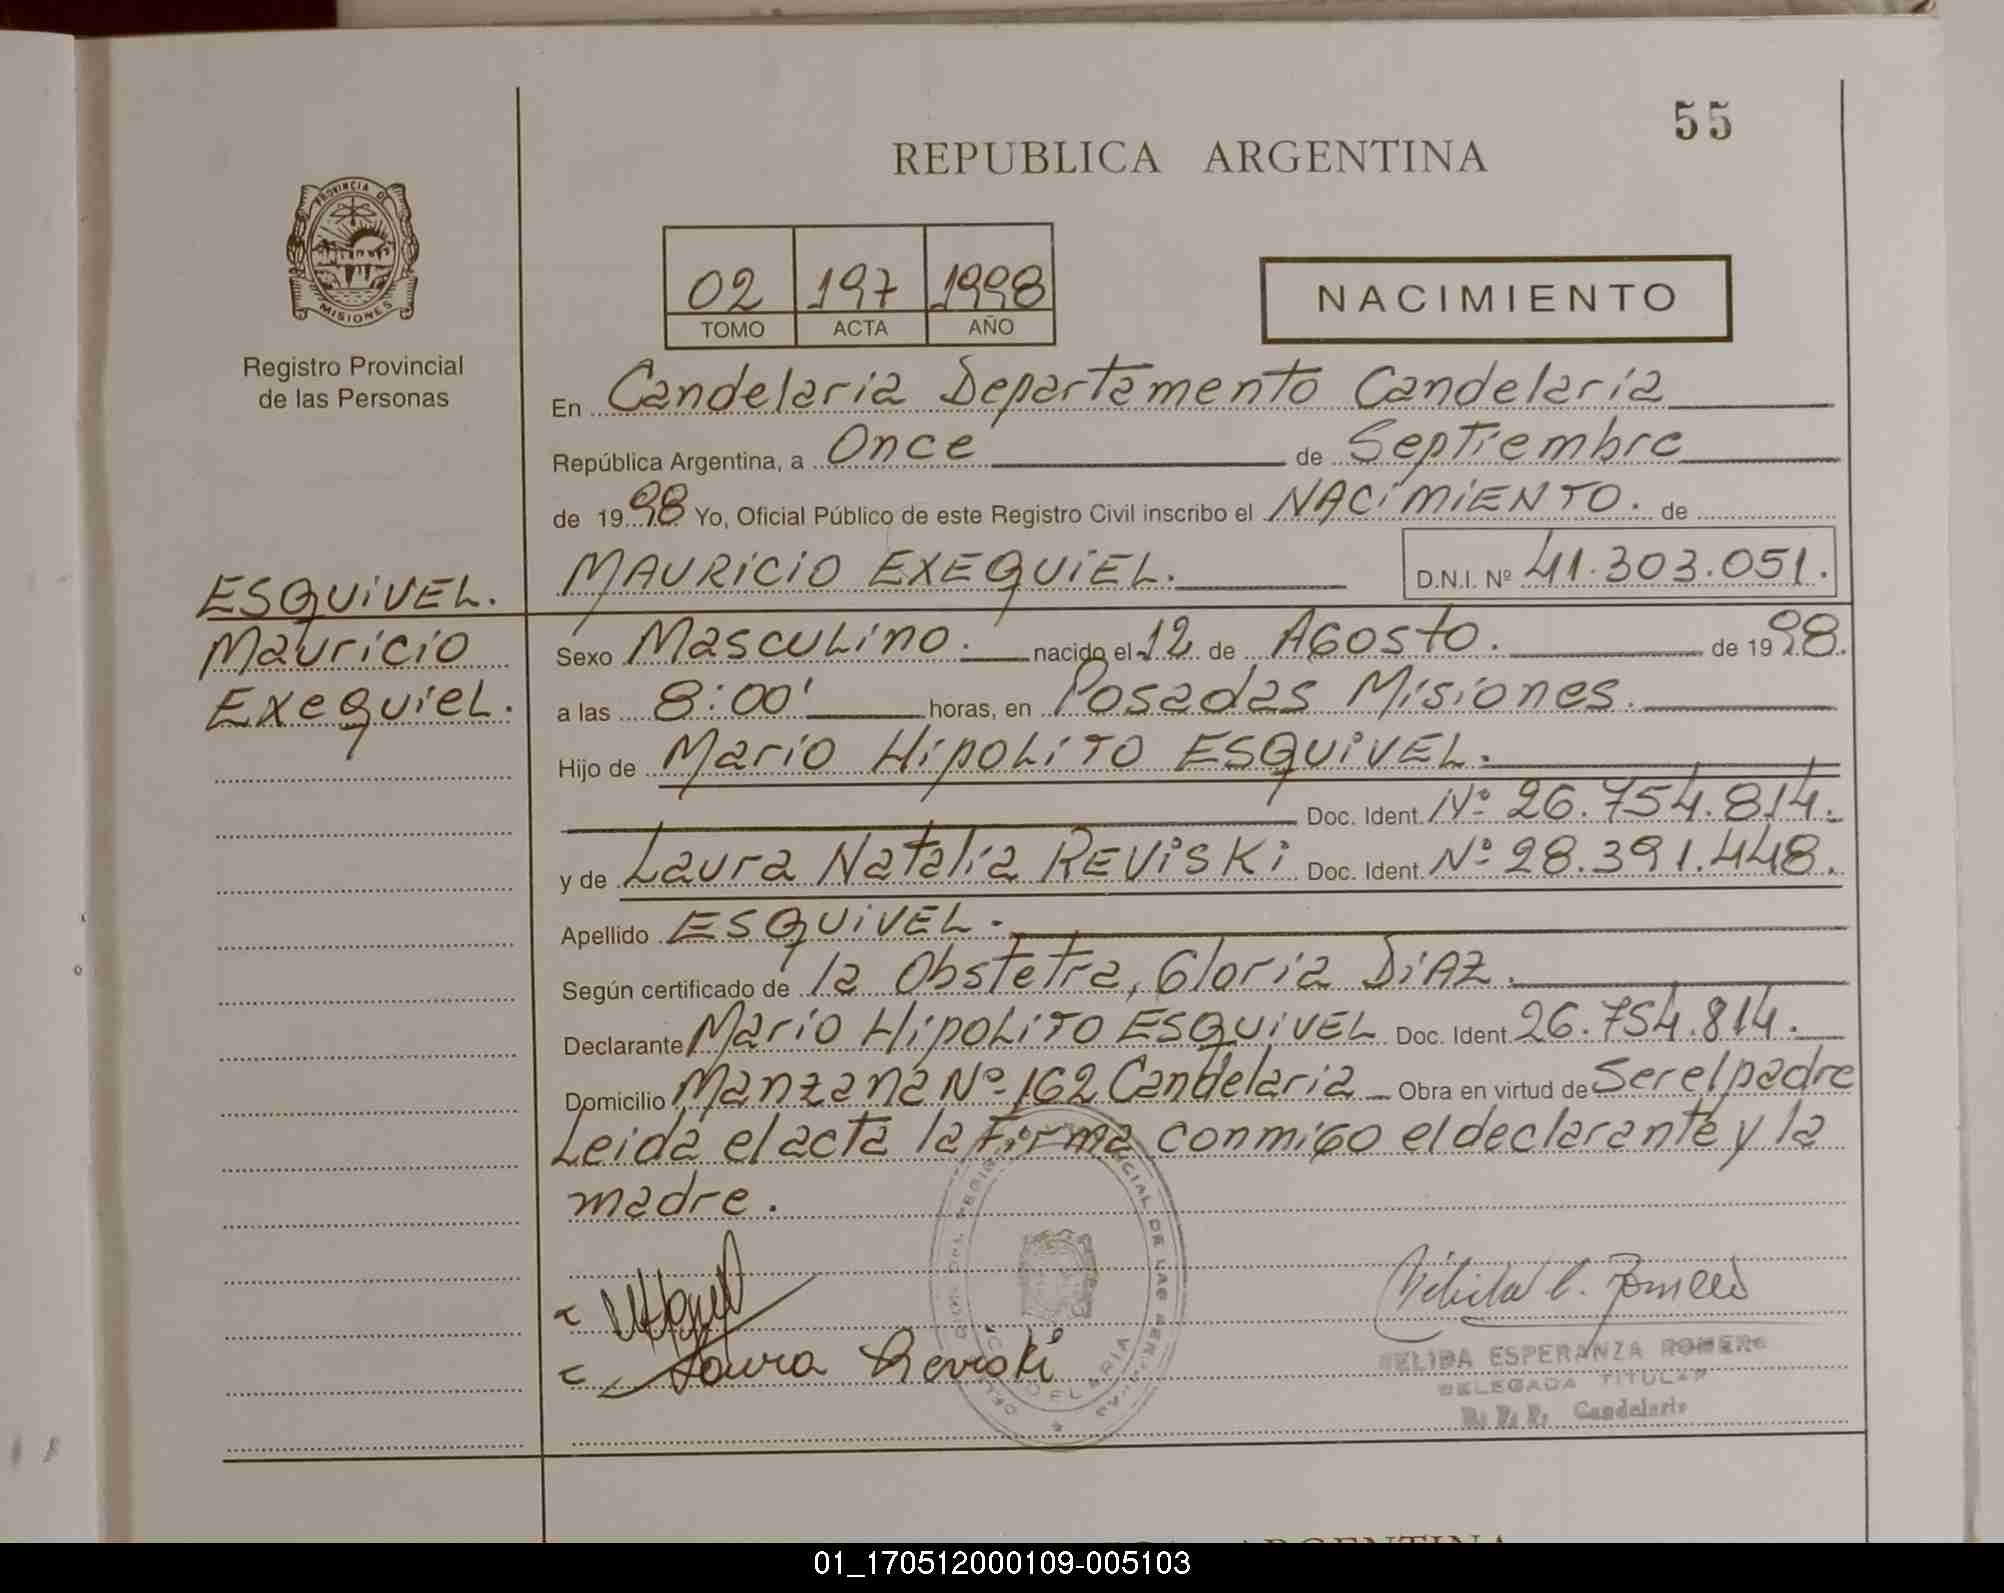 55
REPUBLICA ARGENTINA
PROVINCIA DE
MISIONES
Registro Provincial
de las Personas
02 197 1998
TOMO ACTA AÑO
NACIMIENTO
En Candelaria Departamento Candelaria
República Argentina, a Once de Septiembre
de 1998 Yo, Oficial Público de este Registro Civil inscribo el NACIMIENTO. de
MAURICIO EXEQUIEL. D.N.I. Nº 41.303.051.
ESQUIVEL.
Mauricio
Exequiel.
Sexo Masculino. nacido el 12 de Agosto. de 1998.
a las 8:00' horas, en Posadas Misiones.
Hijo de Mario Hipolito ESQUIVEL.
Doc. Ident. Nº 26.754.814.
y de Laura Natalia REVISKI Doc. Ident. Nº 28.391.448.
Apellido ESQUIVEL.
Según certificado de la Obstetra, Gloria DIAZ.
Declarante Mario Hipolito ESQUIVEL Doc. Ident. 26.754.814.
Domicilio Manzana Nº 162 Candelaria Obra en virtud de Ser el padre
Leida el acta la Firma conmigo el declarante y la
madre.
Laura Reviski
ESPERANZA ROMERO
DELEGADA TITULAR
R. P. P. Candelaria
ARGENTINA
01_170512000109-005103